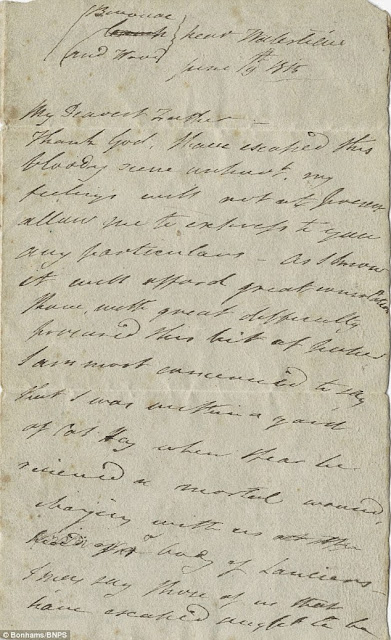 Bivouac
and Wood } near Waterloo
June 19th 1815
My Dearest Father –
Thank God, I have escaped this
bloody scene unhurt. my
feelings will not at present
allow me to express to you
any particulars – As I know
it will afford great consolation
I have, with great difficulty
procured this bit of paper
I am most concerned to say
that I was within a yard
of Col Hay when I fear he
received a mortal wound,
charging with us at the
head of body of Lanciers –
I may say those of us that
have escaped ought to be
© Bonhams/BNPS